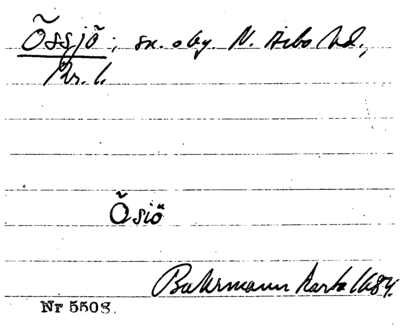 Össjö; sn. o by. N. Åsbo hd.,
Kr. l.
Ösiö
Buhrmann Karta 1684.
Nr 5508.